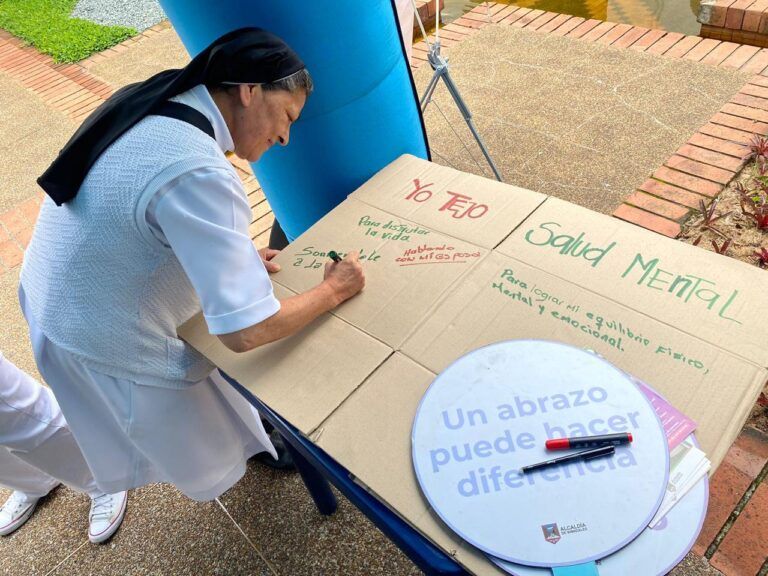 Yo TeJo
Para disfrutar
la vida
Hablando
con mi esposa
Sonriendole
a la
Salud Mental
Para lograr mi equilibrio Fisico,
Mental y emocional.
Un abrazo
puede hacer
diferencia
ALCALDÍA
DE MANIZALES